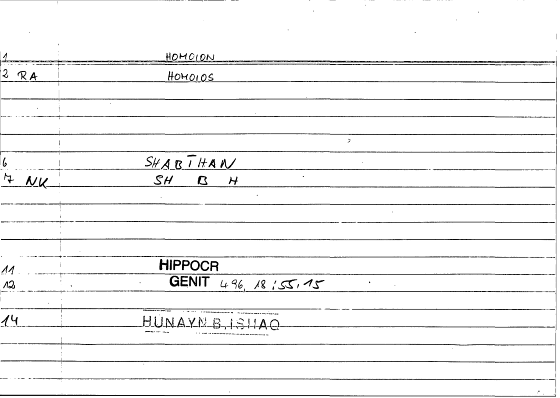 1 HOMOION
2 RA HOMOIOS
6 SHABTHAN
7 NK SH B H
11 HIPPOCR
12 GENIT 496, 18 ; 55, 15
14 HUNAYN B. ISHAQ